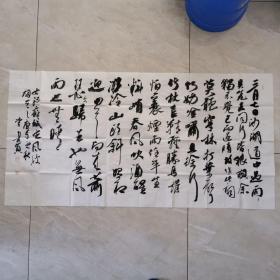 三月七日沙湖道中遇雨
雨具先去同行皆狼狈余
独不觉已而遂晴故作此词
莫听穿林打叶声
何妨吟啸且徐行
竹杖芒鞋轻胜马谁
怕一蓑烟雨任平生
料峭春风吹酒醒
微冷山头斜照相
迎回首向来萧
瑟处归去也无风
雨也无晴
定风波